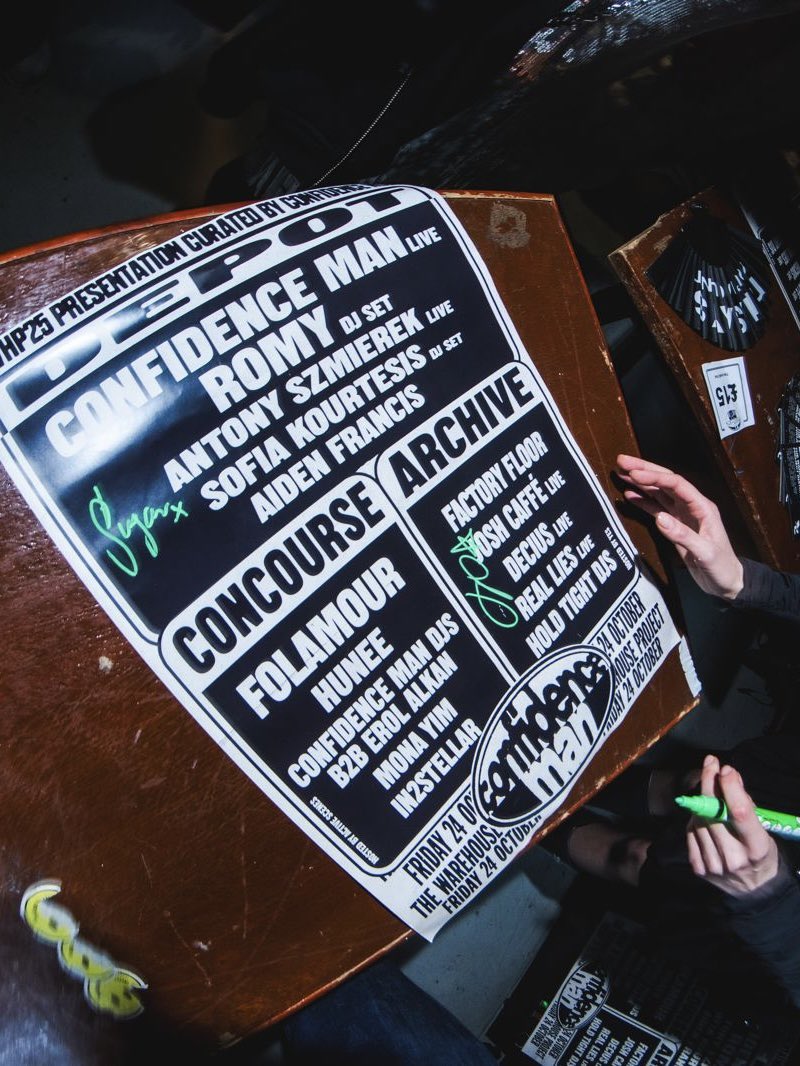 HP25 PRESENTATION CURATED BY CONFIDENCE
DEPOT
CONFIDENCE MAN LIVE
ROMY DJ SET
ANTONY SZMIEREK LIVE
SOFIA KOURTESIS DJ SET
AIDEN FRANCIS
Sugar x
CONCOURSE
FOLAMOUR
HUNEE
CONFIDENCE MAN DJS
B2B EROL ALKAN
MONA YIM
IN2STELLAR
HOSTED BY ACTIVE SCENES
ARCHIVE
FACTORY FLOOR
JOSH CAFFÉ LIVE
DECIUS LIVE
REAL LIES LIVE
HOLD TIGHT DJS
HOSTED BY YEZ
confidence man
FRIDAY 24 OC
24 OCTOBER
THE WAREHOUSE
HOUSE PROJECT
FRIDAY 24 OCTOBER
FRIDAY 24 OCTOBER
£15
confidence man
FACTO
JOSH CAF
DECIUS
REAL LIES
HOLD TIGHT
AR